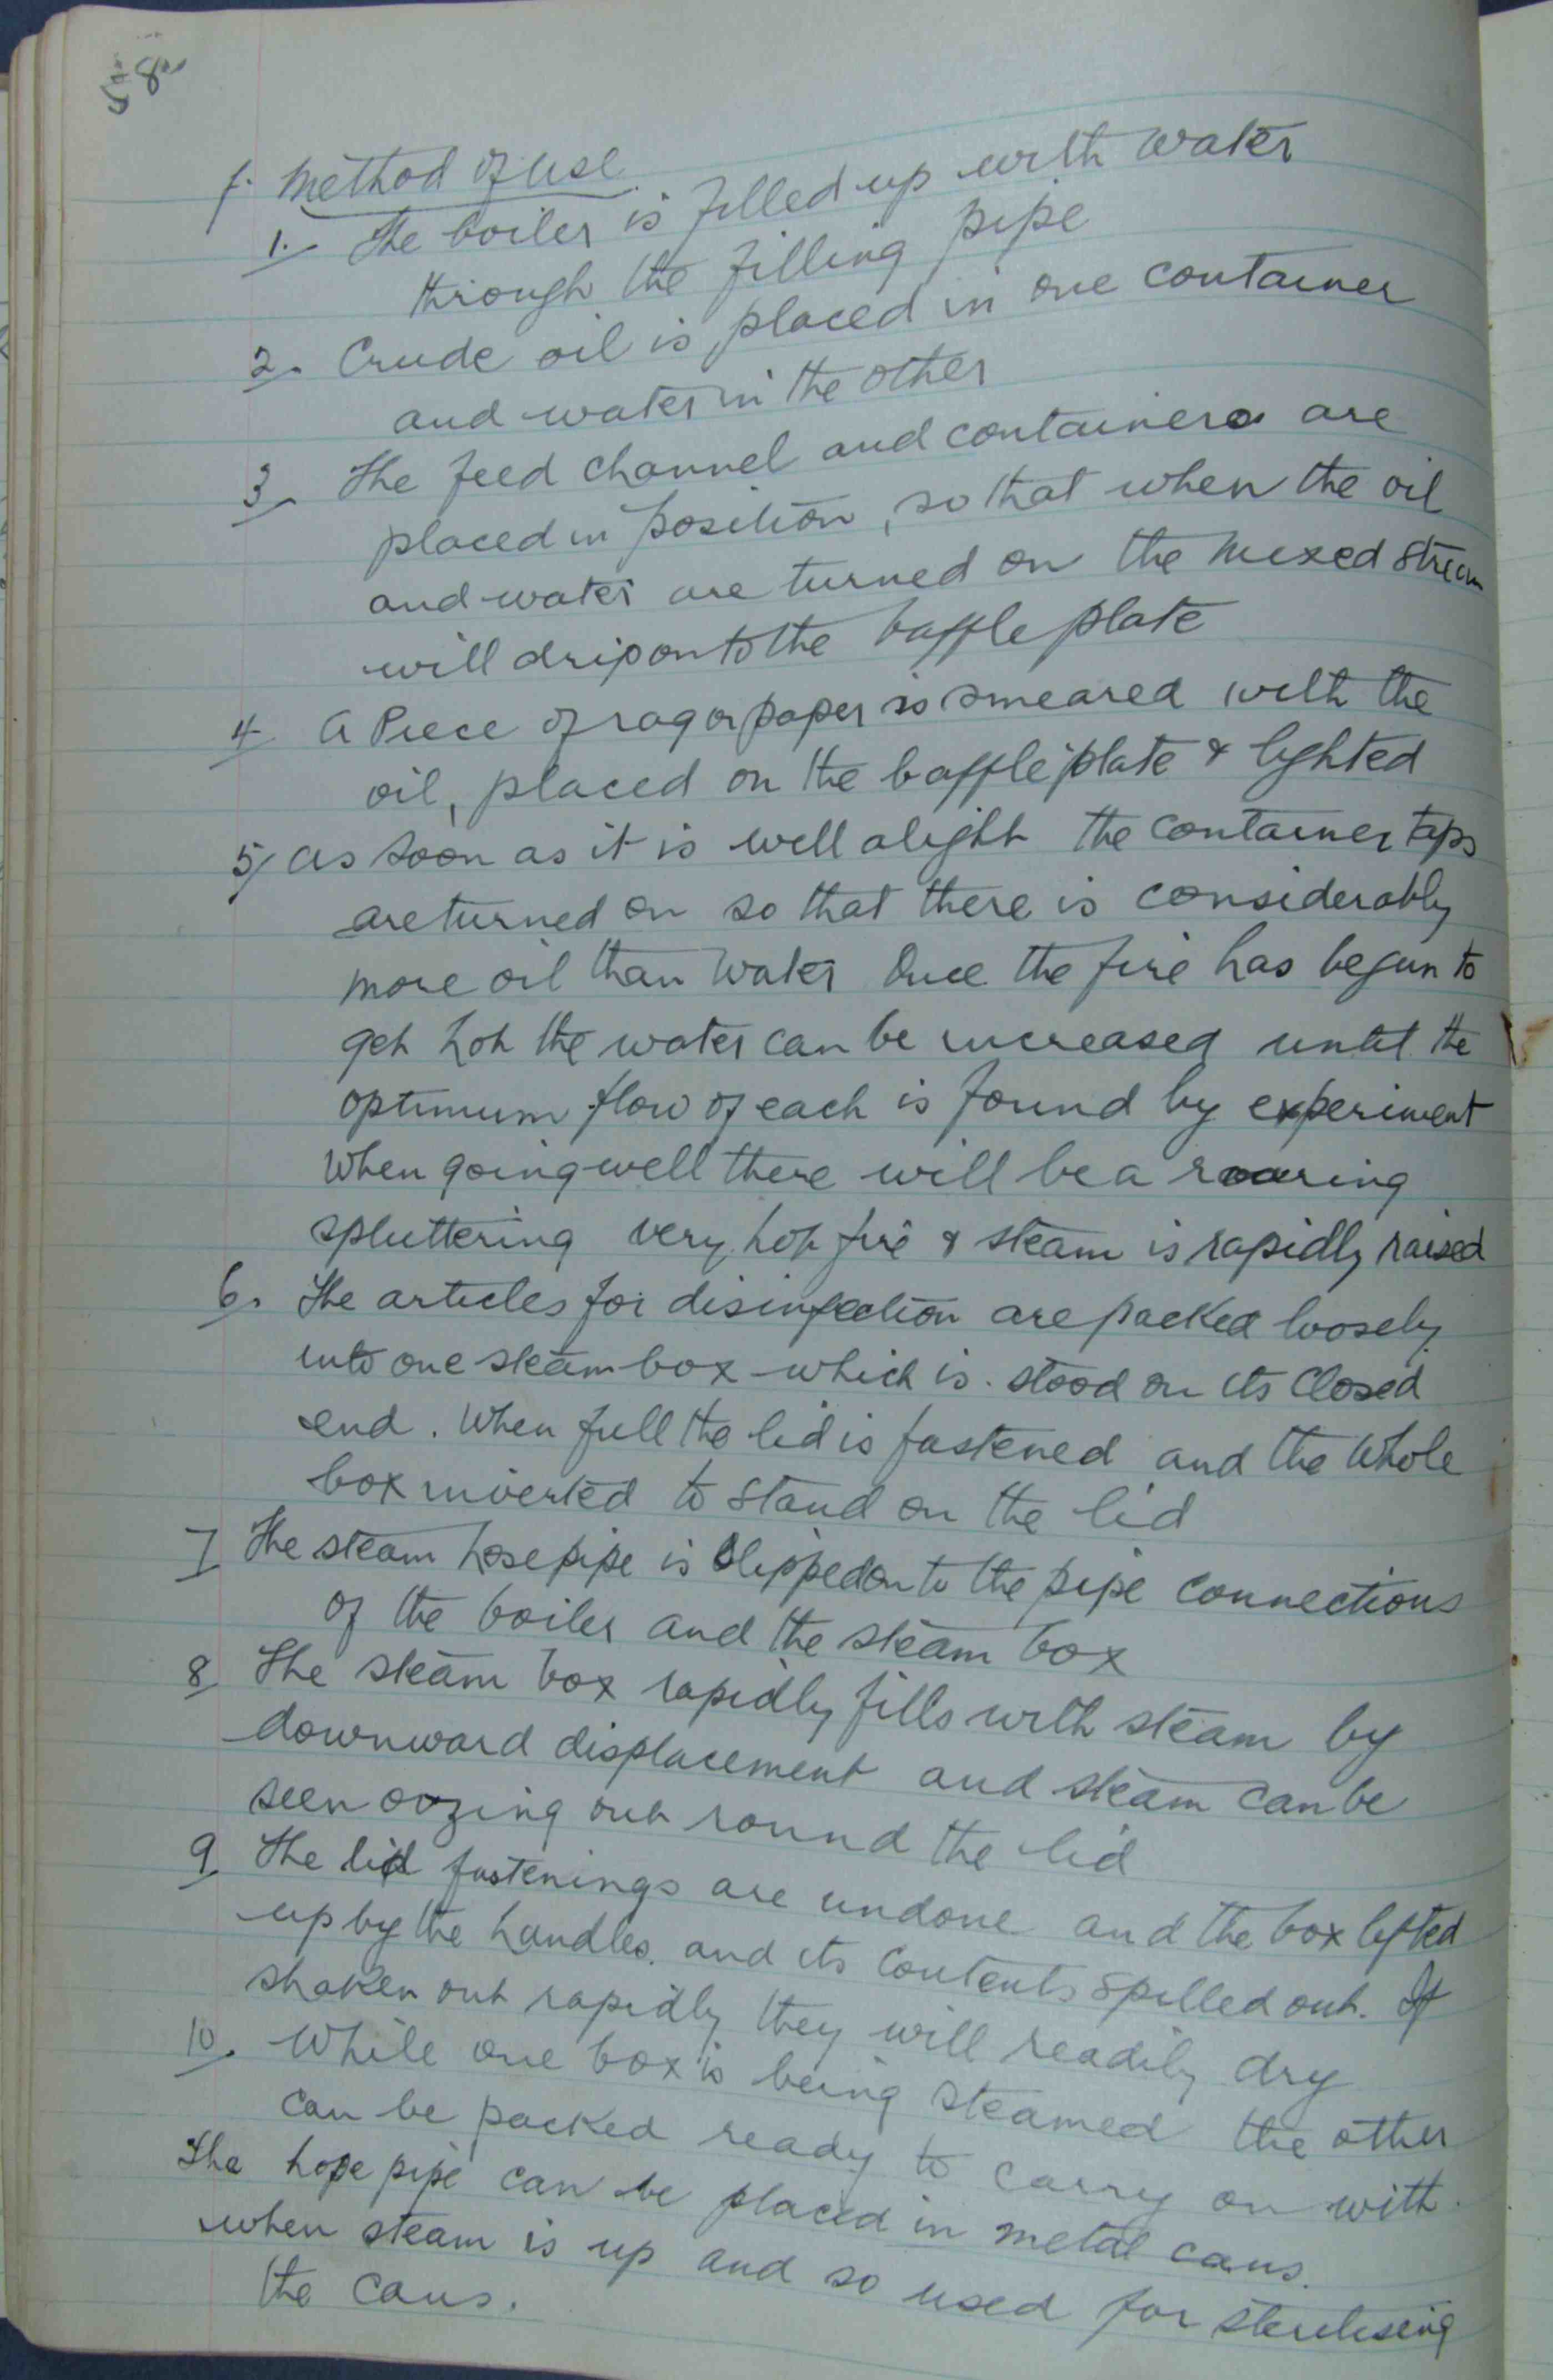 8
f. Method of use
1. The boiler is filled up with water
through the filling pipe
2. Crude oil is placed in one container
and water in the other
3. The feed channel and containers are
placed in position, so that when the oil
and water are turned on the mixed stream
will drip on to the baffle plate
4. A Piece of rag or paper is smeared with the
oil, placed on the baffle plate & lighted
5. As soon as it is well alight the container taps
are turned on so that there is considerably
more oil than water Once the fire has begun to
get hot the water can be increased until the
optimum flow of each is found by experiment
When going well there will be a roaring
spluttering very hot fire & steam is rapidly raised
6. The articles for disinfection are packed loosely
into one steam box which is stood on its closed
end. When full the lid is fastened and the whole
box inverted to stand on the lid
7. The steam hose pipe is slipped on to the pipe connections
of the boiler and the steam box
8. The steam box rapidly fills with steam by
downward displacement and steam can be
seen oozing out round the lid
9. The lid fastenings are undone and the box lifted
up by the handles. and its contents spilled out. If
shaken out rapidly they will readily dry
10. While one box is being steamed the other
can be packed ready to carry on with.
The hose pipe can be placed in metal cans.
when steam is up and so used for sterilising
the cans.